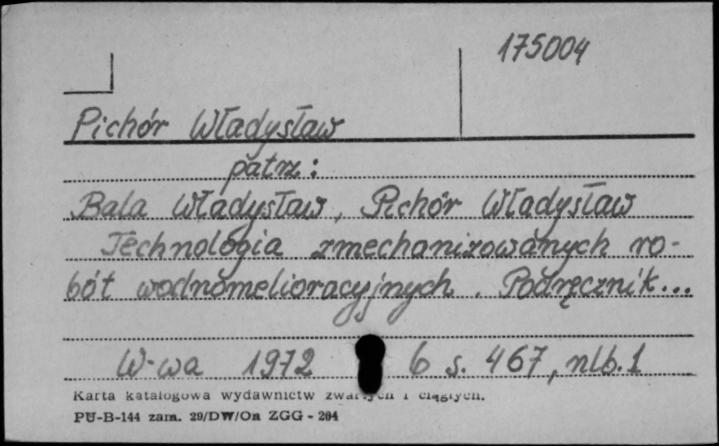 175004
Pichór Władysław
patrz:
Bala Władysław, Pichór Władysław
Technologia zmechanizowanych ro-
bót wodnomelioracyjnych. Podręcznik...
W-wa 1972 6 s. 467, nlb. 1
Karta katalogowa wydawnictw zwartych i ciągłych.
PU-B-144 zam. 29/DW/Oa ZGG - 264